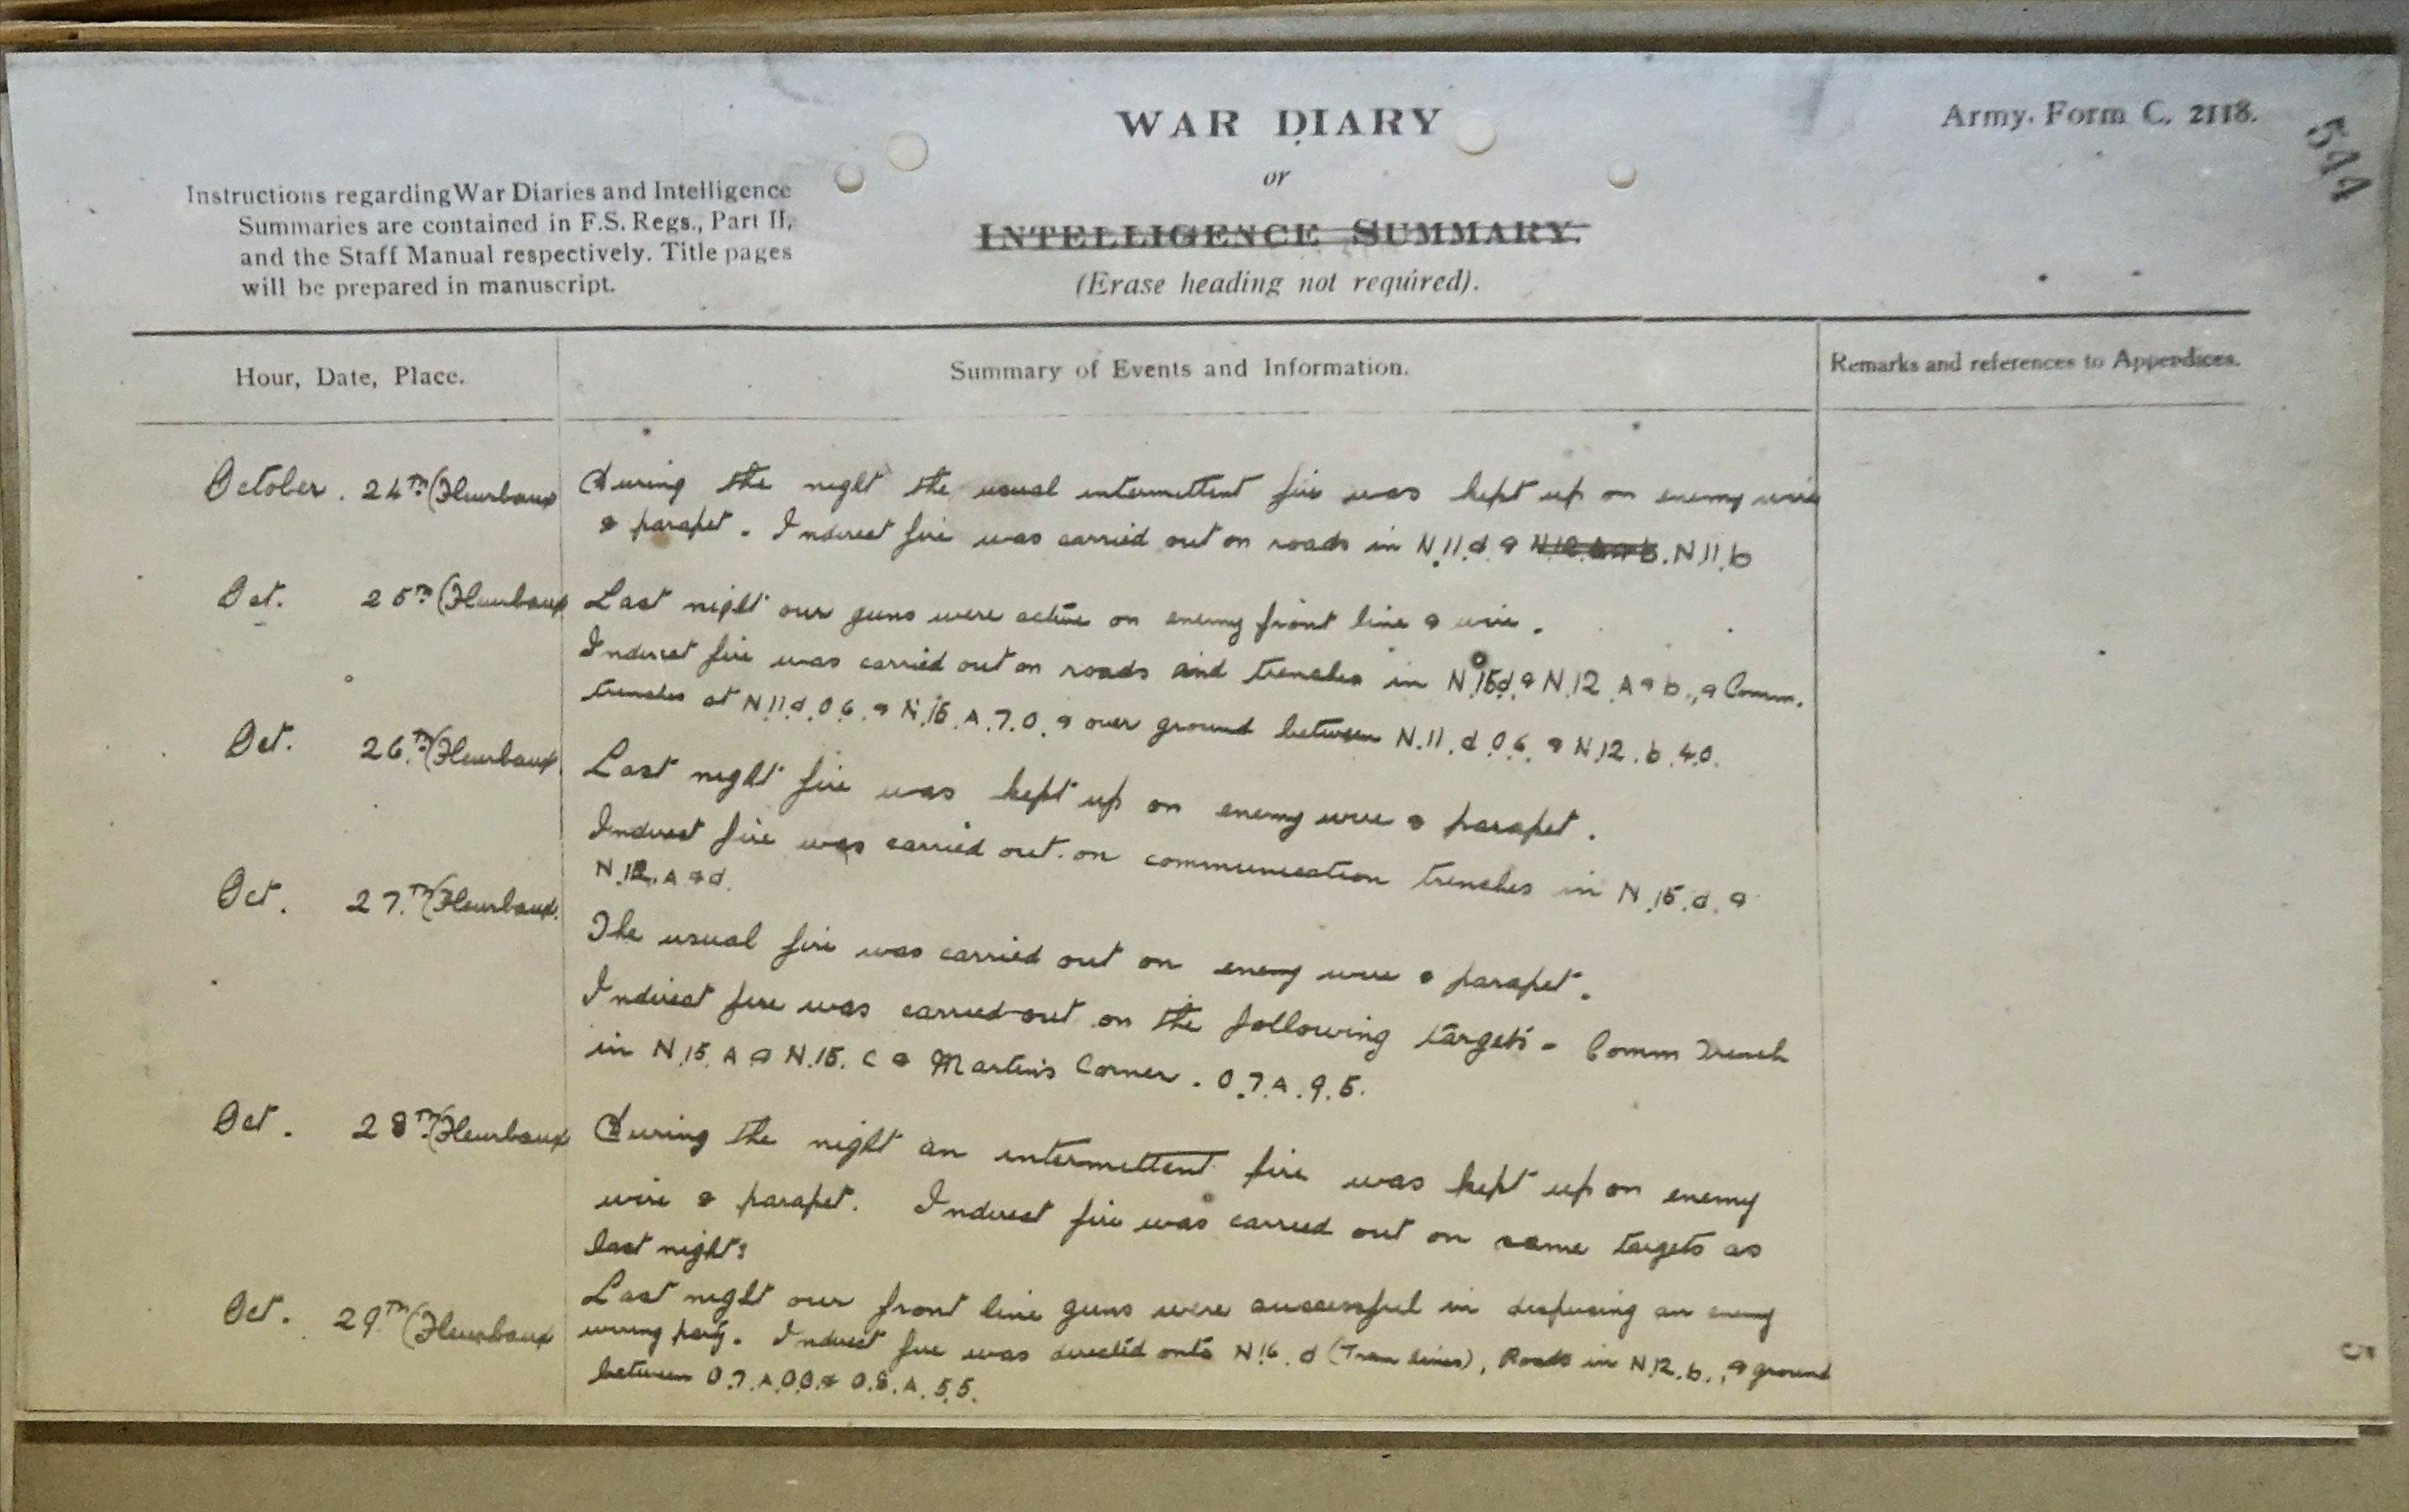 WAR DIARY
or
INTELLIGENCE SUMMARY.
(Erase heading not required).
Army Form C. 2118.
544
Instructions regarding War Diaries and Intelligence
Summaries are contained in F.S. Regs., Part II,
and the Staff Manual respectively. Title pages
will be prepared in manuscript.
Hour, Date, Place.
Summary of Events and Information.
Remarks and references to Appendices.
October. 24th (Fleurbaux During the night the usual intermittent fire was kept up on enemy wire
& parapet. Indirect fire was carried out on roads in N.11.d & N.11.b
Oct. 25th (Fleurbaux Last night our guns were active on enemy front line & wire.
Indirect fire was carried out on roads and trenches in N.15d, & N.12 A & b., & Comm.
trenches at N.11.d.0.6. & N.15.A.7.0. & over ground between N.11.d.0.6. & N.12.b.4.0.
Oct. 26th (Fleurbaux. Last night fire was kept up on enemy wire & parapet.
Indirect fire was carried out on communication trenches in N.15.d. &
N.12.A & d.
Oct. 27th (Fleurbaux. The usual fire was carried out on enemy wire & parapet.
Indirect fire was carried out on the following targets - Comm Trench
in N.15.A & N.15.C & Martins Corner. O.7.A.9.5.
Oct. 28th (Fleurbaux During the night an intermittent fire was kept up on enemy
wire & parapet. Indirect fire was carried out on same targets as
last night:
Oct. 29th (Fleurbaux Last night our front line guns were successful in dispersing an enemy
wiring party. Indirect fire was directed onto N.16.d (Tram lines), Roads in N.12.b., & ground
between O.7.A.0.0. & O.8.A.5.5.
5